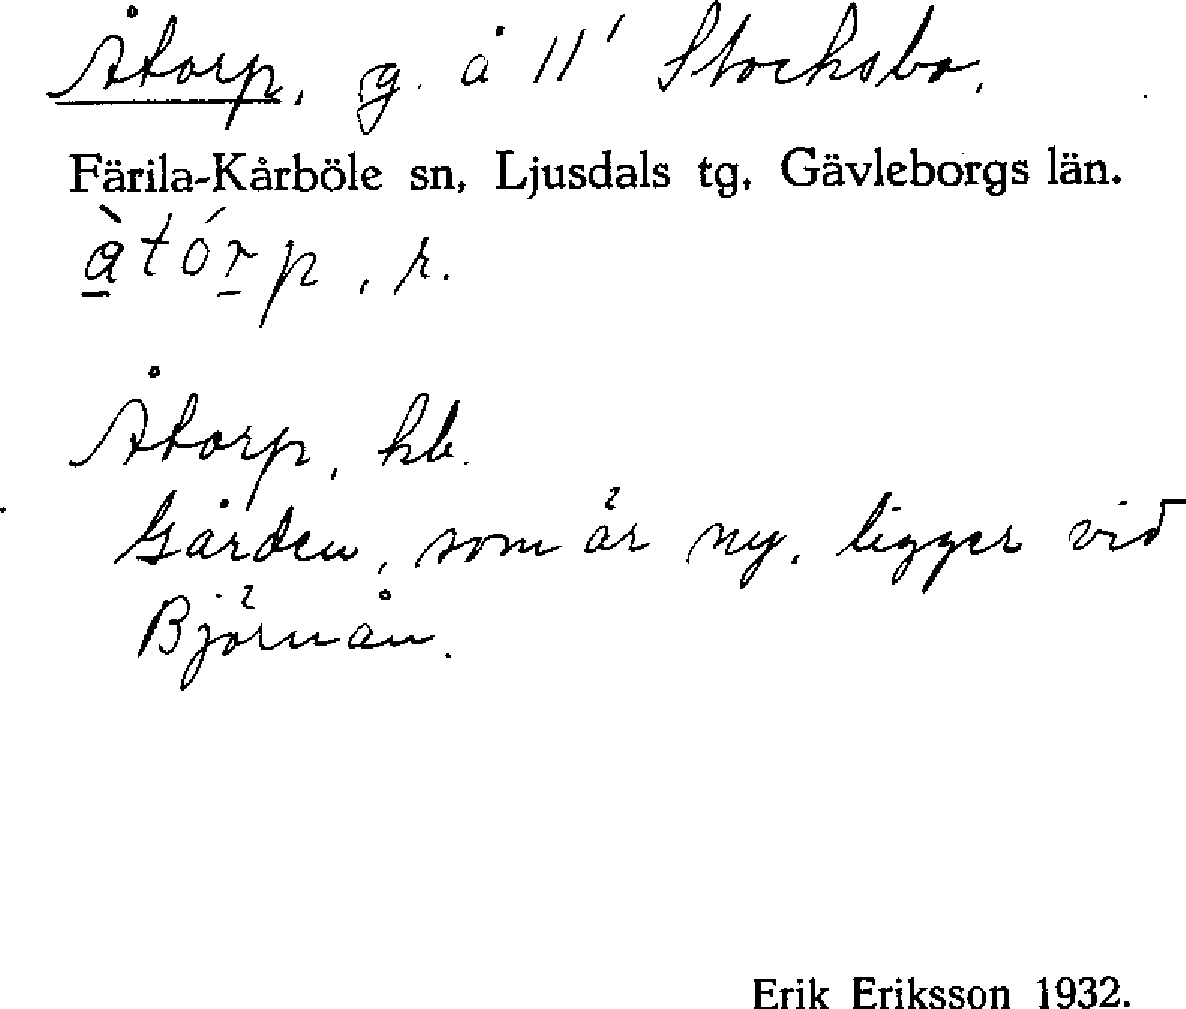 Åtorp, g. å 11' Stocksbo.
Färila-Kårböle sn, Ljusdals tg, Gävleborgs län.
àtórp, r.
Åtorp, hb.
Gården, som är ny, ligger vid
Björnån.
Erik Eriksson 1932.